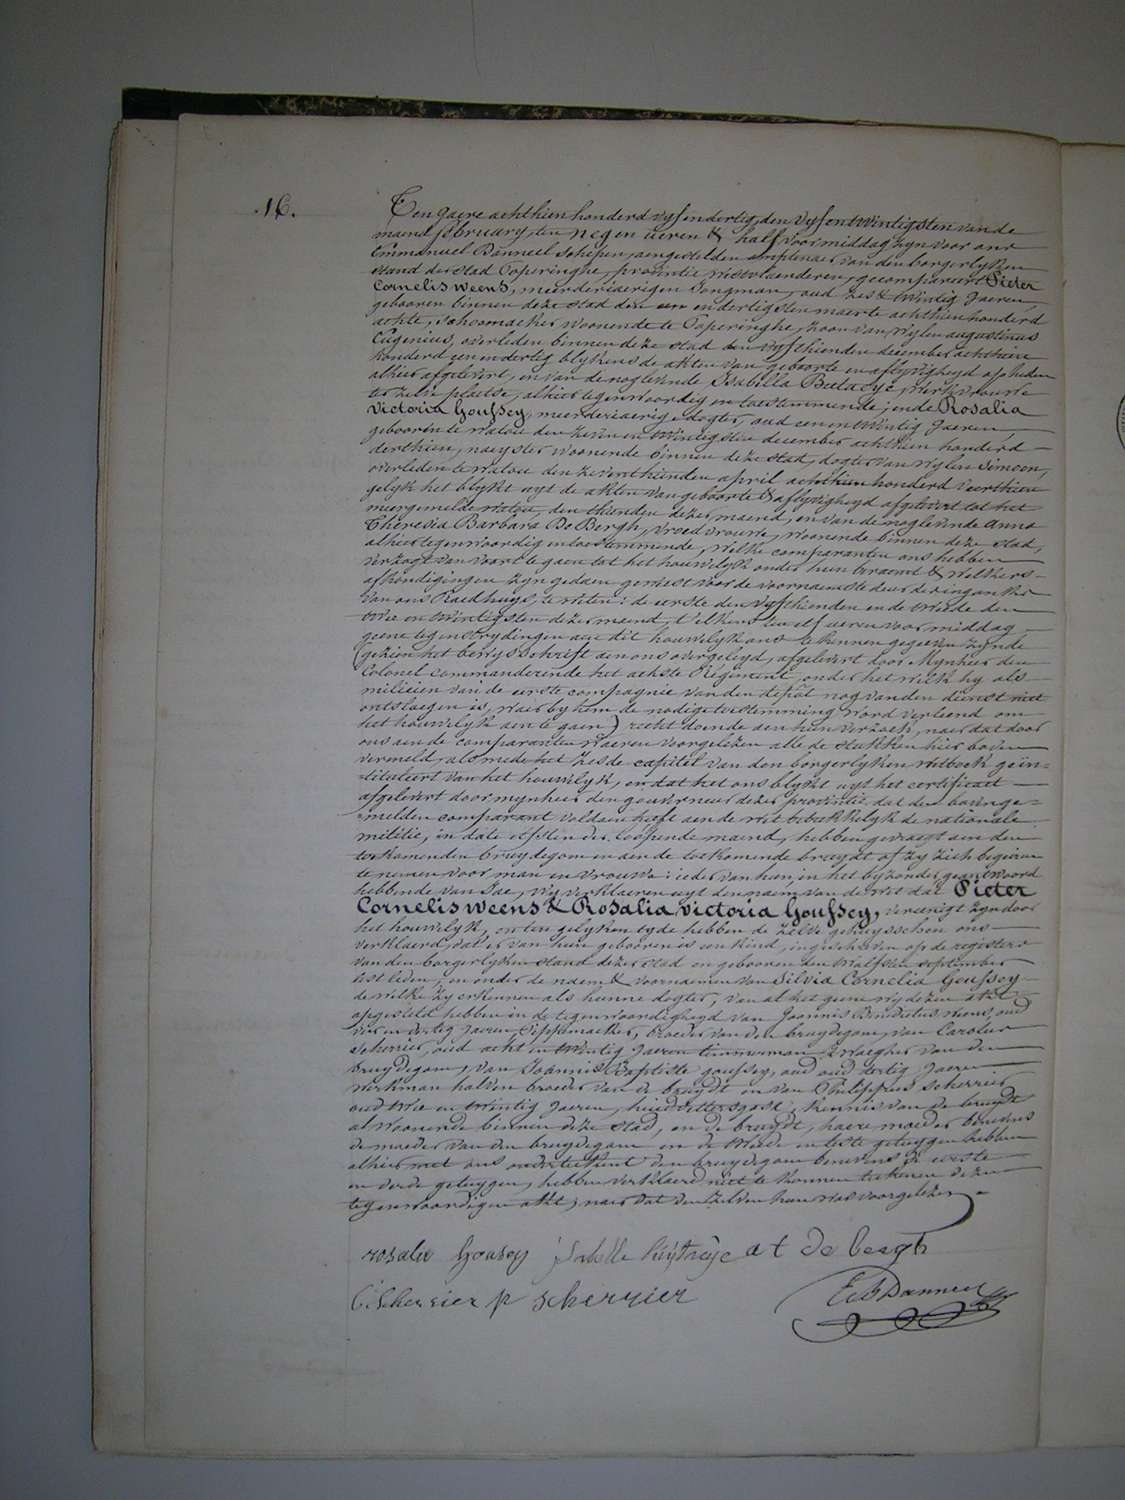 16.
Ten jaere achthien honderd vyf en dertig, den vyf en twintigsten van de
maend february, ten negen ueren & half voormiddag zyn voor ons
Emmanuel Banneel Schepen, aengestelden amptenaer van den borgerlyken
stand der stad Poperinghe, provintie westvlaenderen, gecompareert Pieter
Cornelis Weens, meerderjaerigen Jongman, oud zes & twintig Jaeren,
gebooren binnen deze stad den een en dertigsten maerte achthien honderd
achte, schoemaeker woonende te Poperinghe, zoon van wylen augustinus
Eugenius, overleden binnen deze stad den vyfthienden december achthien
honderd een en dertig blykens de akten van geboorte en aflyvigheyd op heden
alhier afgelevert, en van de noglevende Isabella Butaeye, werkvrouwe
ter zelve plaetse, alhier tegenwoordig en toestemmende; ende Rosalia
Victoria Goussey, meerderjaerige dogter, oud een en twintig Jaeren,
gebooren te watou den zeven en twintigsten december achthien honderd
derthien, naeyster woonende binnen deze stad, dogter van wylen Simoen,
overleden te watou den zeventhienden april achthien honderd veerthien
gelyk het blykt uyt de akten van geboorte & aflyvigheyd afgelevert tot het
meergemelde watou, den thienden dezer maend, en van de noglevende anna
Theresia Barbara De Bergh, vroedvrouwe, woonende binnen deze stad,
alhier tegenwoordig en toestemmende, welke comparanten ons hebben
verzogt van voort te gaen tot het houwelyk onder hun beraemd & welkers
afkondigingen zyn gedaen geweest voor de voornaemste deur der ingank
van ons Raedhuys, te weten: de eerste den vyfthienden en de tweede den
twee en twintigsten dezer maend, t'elkens ten elf ueren voormiddag
geene tegenstrydingen aen dit houwelyk ons te kennen gegeven zynde
(gezien het bewysschrift aen ons overgelegd, afgelevert door Mynheer den
Colonel commanderende het achste Régiment, onder het welk hy als
milicien van de eerste compagnie van den depôt nog van den dienst niet
ontslaegen is, waer by hem de nodige toestemming word verleend om
het houwelyk aen te gaen) recht doende aen hun verzoek, naer dat door
ons aen de comparanten waeren voorgelezen alle de stukken hier boven
vermeld, als mede het zesde capittel van den borgerlyken wetboek geïn-
tituleert van het houwelyk, en dat het ons blykt uyt het certificaet
afgelevert door mynheer den gouverneur dezer provintie, dat den bovenge-
melden comparant voldaen heeft aen de wet betrekkelyk de nationale
militie, in date elfsten der loopende maend, hebben gevraegt aen den
toekomenden bruydegom en aen de toekomende bruydt of zy zich begeiren
te nemen voor man en vrouwe: ieder van hun in het byzonder geantwoord
hebbende van Jae, wy verklaeren uyt den naem van de wet dat Pieter
Cornelis Weens & Rosalia Victoria Goussey, vereenigt zyn door
het houwelyk, en ten gelyken tyde hebben de zelve gehuysschen ons
verklaerd, dat er van hun gebooren is een kind, ingeschreven op de registers
van den borgerlyken stand dezer stad en gebooren den twalfsten september
lest leden, en onder de naem & voornaemen van Silvia Cornelia Goussey
de welke zy erkennen als hunne dogter, van al het geene wy dezen akt
opgesteld hebben in de tegenwoordigheyd van Joannis Benedictus Weens, oud
vier en dertig jaeren, Pippemaeker, broeder van den bruydegom, van Carolus
Scherrier, oud acht en twintig Jaeren timmerman zwaegher van den
bruydegom, van Joannis Baptiste goussey, oud dertig Jaeren
werkman halven broeder van de bruydt en van Philippus Scherrier
oud twee en twintig Jaeren, huidevettersgast, kennis van de bruydt
al woonende binnen deze stad, en de bruydt, haere moeder benevens
de moeder van den bruydegom en de tweede en leste getuygen hebben
alhier met ons onderteekent den bruydegom benevens de eerste
en derde getuygen, hebben verklaerd niet te konnen teekenen dezen
tegenwoordigen akt, naer dat den zelven hun was voorgelezen
rosalie Gousey isabelle Puÿtaeÿe a t de bergh
C. Scherrier p scherrier
E. B Banneel